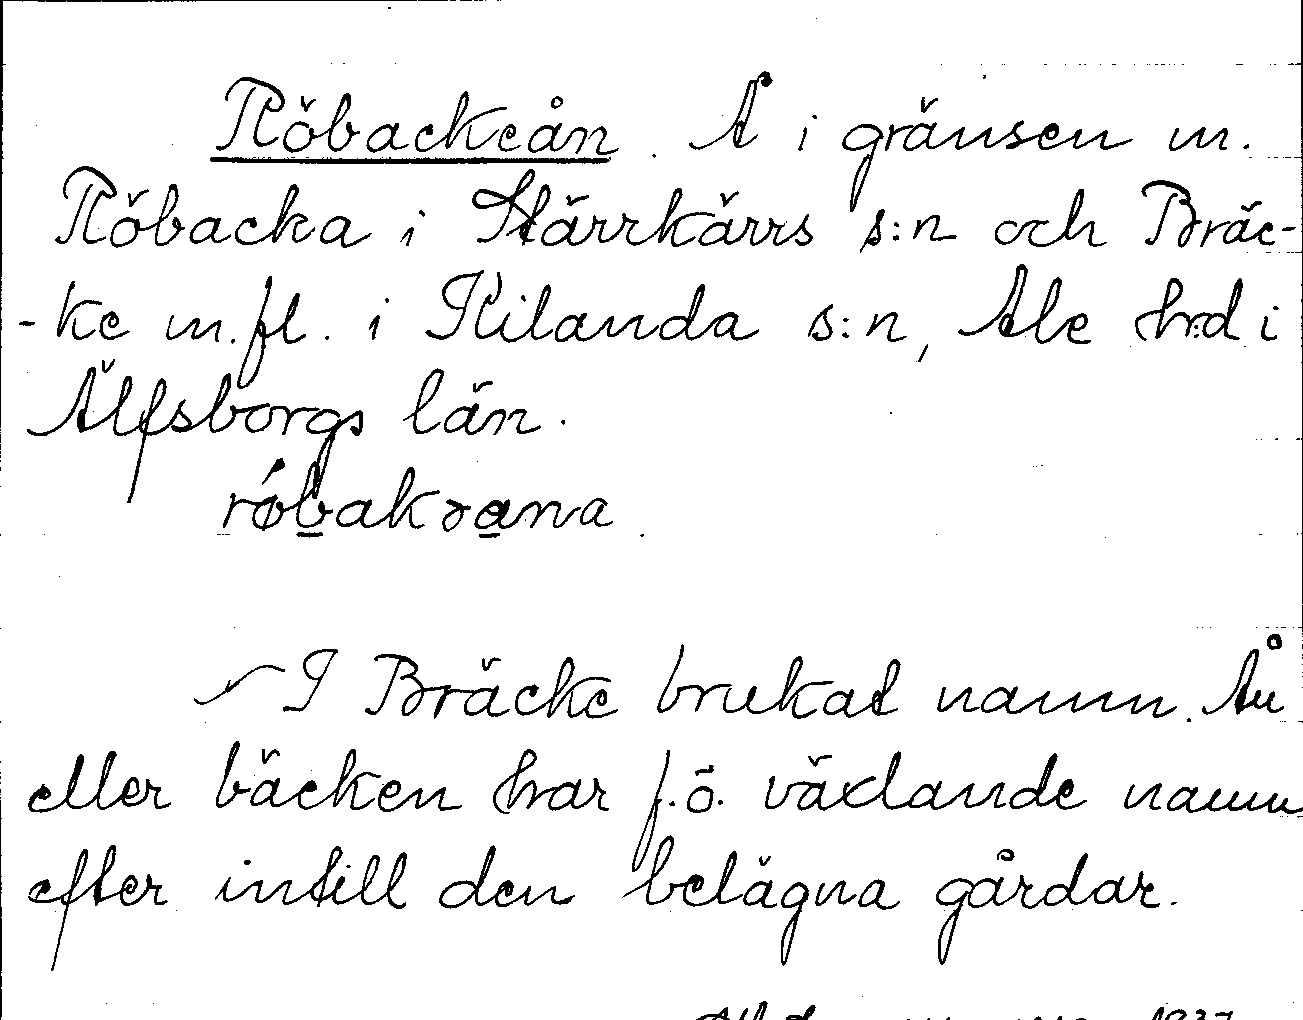 Röbackeån. Å i gränsen m.
Röbacka i Stärrkärrs s:n och Bräc-
-ke m.fl. i Kilanda s:n, Ale hrd i
Älfsborgs län.
róbakɘana.
I Bräcke brukat namn. Ån
eller bäcken har f.ö. växlande namn
efter intill den belägna gårdar.
1937